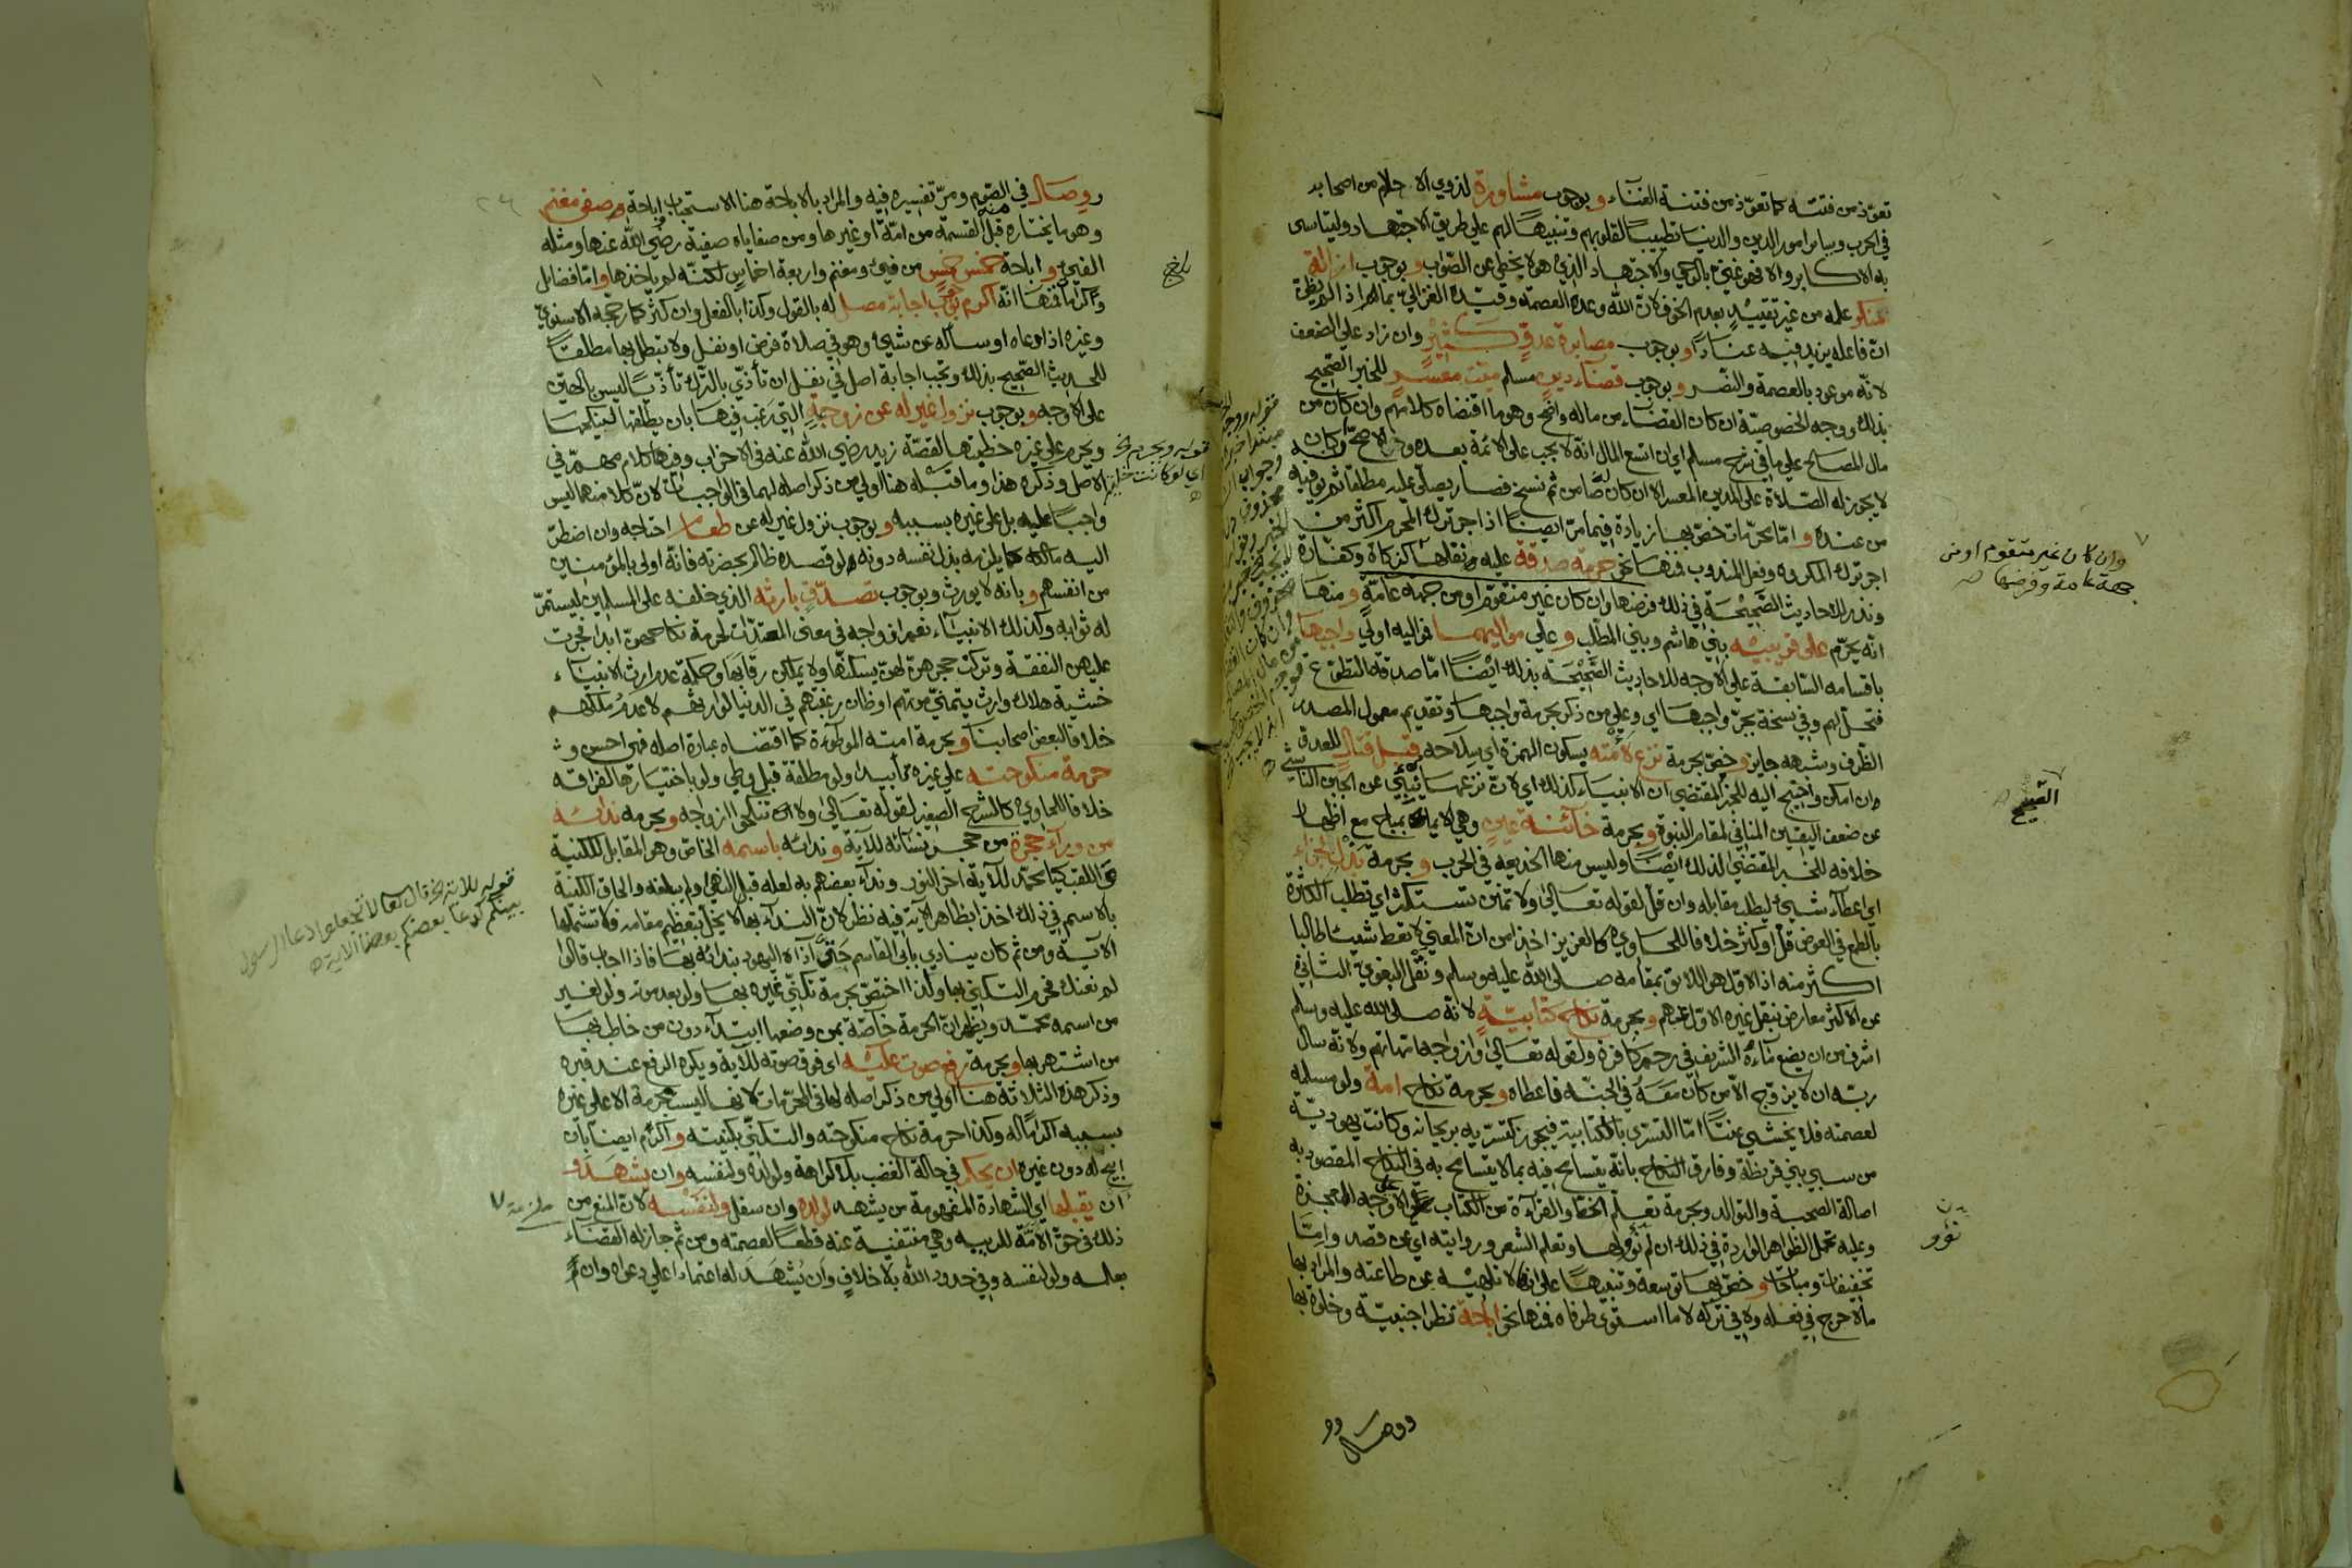 تعوّذ من فتنته كما تعوّذ من فتنة الغناء وبوجوب مشاورة لذوي الاحلام من اصحابه
في الحرب وساير امور الدين والدنيا تطييبًا لقلوبهم وتنبيهًا لهم علي طريق الاجتهاد وليتاسى
به الاكابر والا فهو غني بالوحي والاجتهاد الذي هو لا يخطي عن الصواب وبوجوب ازالة
منكر علمه من غير تقييد بعدم الخوف لان الله وعده العصمة وقيّده الغزاليّ بما اذا لم يظن
ان فاعله يزيد فيه عنادًا وبوجوب مصابرة عدوّ كثير وان زاد علي الضعف
لانه موعود بالعصمة والنصر وبوجوب قضاء دين مسلم ميت معسر للخبر الصحيح
بذلك ووجه الخصوصية ان كان القضاء من ماله واضح وهو ما اقتضاه كلامهم وان كان من
مال المصالح علي ما في شرح مسلم اي ان اتسع المال انه لا يجب على الائمة بعده في الاصح وكان
لا يجوز له الصلاة على المدين المعسر الا ان كان ضامن ثم نسخ فصار يصلّي عليه مطلقا ثم يوفيه
من عنده واما محرّمات خصّ بها زيادة فيما مرّ ايضًا اذ اجر ترك المحرم اكثر من
اجر ترك المكروه وفعل المندوب فمنها نحو حرمة صدقة عليه ونفلها كزكاة وكفارة
ونذر للاحاديث الصحيحة في ذلك فرضها وان كان غير متقوّم او من جهة عامّة ومنها
انه يحرّم على قريبيه بني هاشم وبني المطّلب وعلي مواليهما فواليه اولي واجبها
باقسامه السّابقة علي الأوجه للاحاديث الصّحيحة بذلك ايضًا امّا صدقة التطوّع
فتحلّ لهم وفي نسخة بجرّ واجبها اي وعلي من ذكر بحرمة واجبها وتقديم معمول المصدر
الظّرف وشبهه جايز وخصّ بحرمة نزع لأمته بسكون الهمزة اي سلاحه قبل قتال للعدو
وان امكن واحتيج اليه للخبر المقتضي ان الانبياء كذلك اي لان نزعها ينبي عن الجبن الناشي
عن ضعف اليقين المنافي لمقام النبوة وبحرمة خائنة عين وهي الايماء بمباح مع اظهار
خلافه للخبر المقتضي لذلك ايضًا وليس منها الخديعة في الحرب وبحرمة
اي اعطاء شيء ليطلب مقابله وان قلّ لقوله تعالى ولا تمنن تستكثر اي تطلب الكثرة
بالطمع في العوض قلّ او كثر خلافا للحاوي كالعزيز اخذا من ان المعني لا تعط شيئا طالبا
اكثر منه اذ الاوّل هو اللائق بمقامه صلى الله عليه وسلم ونقل البغوي الثاني
عن الاكثر معارض بنقل غيره الاوّل عنهم وبحرمة نكاح كتابية لانه صلى الله عليه وسلم
اشرف من ان يضع ماءه الشريف في رحم كافرة ولقوله تعالى وازواجه امهاتهم ولانه سال
ربه ان لا يزوّج الا من كان معه في الجنّة فاعطاه وبحرمة نكاح امة ولو مسلمة
لعصمته فلا يخشي عنتًا امّا التسري بالكتابية فيجوز كتسرّيه بريحانة وكانت يهوديّة
من سبي بني قريظة وفارق النكاح بانه يتسامح فيه بما لا يتسامح به في النكاح المقصود به
اصالة الصحبة والتوالد وبحرمة تعلّم الخط والقرآءة من الكتاب علي الاوجه المعجزة
وعليه تحمل الظواهر الواردة في ذلك ان لم تؤولها وتعلم الشعر وروايته اي عن قصد وامّا
تخفيفات ومباحات وخصّ بها توسعة وتنبيهًا علي انها لا تلهيه عن طاعته والمراد بها
ما لا حرج في فعله ولا في تركه لا ما استوى طرفاه فمنها نحو اباحة نظر اجنبيّة وخلوة بها
وان كان غير متقوم او من
جهة عامة وفرضها صح
القبيح
ووصال
ووصال في الصّوم ومرّ تفسيره فيه والمراد بالاباحة هنا الاستحباب واباحة صفي مغنم
وهو ما يختاره قبل القسمة من امة او غيرها ومن صفاياه صفية رضي الله عنها ومثله
الفيئ واباحة خمس خمس من فيئ ومغنم واربعة اخماس لكنّه لم ياخذها وامّا فضائل
واكرام فمنها انه اكرم بوجوب اجابة مصل له بالقول وكذا بالفعل وان كثر كما رجّحه الاسنوي
وغيره اذا دعاه او سأله عن شيئ وهو في صلاة فرض او نفل ولا تبطل بها مطلقًا
للحديث الصّحيح بذلك وتجب اجابة اصل في نفل ان تأذّي بالترك تأذّيًا ليس بالهيّن
على الاوجه وبوجوب نزول غير له عن زوجة التي رغب فيها بان يطلّقها لينكحها
ويحرم علي غيره خطبتها لقصّة زيد رضي الله عنه في الاحزاب وفيها كلام مهمّ في
الاصل وذكره هذا وما قبله هنا اولي من ذكر اصله لهما في الواجبات لانّ كلا منهما ليس
واجبًا عليه بل على غيره بسببه وبوجوب نزول غير له عن طعام احتاجه وان اضطرّ
اليه مالكه كما يلزمه بذل نفسه دونه لو قصده ظالم بحضرته فانّه اولى بالمؤمنين
من انفسهم وبانه لا يورث وبوجوب تصدّق بارثه الذي خلفه على المسلمين ليستمرّ
له ثوابه وكذلك الانبياء نعم ازواجه في معنى المعتدّات لحرمة نكاحهنّ ابدا فجرت
عليهن النفقة وتركت حجرهنّ لهنّ يسكنّها ولا يملكن رقابها وحكمة عدم ارث الانبياء
خشية هلاك وارث يتمنّي موتهم او ظان رغبتهم في الدنيا لوارثهم لا عدم ملكهم
خلافا لبعض اصحابنا وبحرمة امته الموطوءة كما اقتضاه عبارة اصله فهي احسن و
حرمة منكوحته علي غيره تأبيدا ولو مطلقة قبل وطئ ولو باختيارها لفراقه
خلافا للحاوي كالشرح الصغير لقوله تعالى ولا ان تنكحوا ازواجه وبحرمة ندائه
من ورآء حجرة من حجر نسائه للآية وندائه باسمه الخاص وهو المقابل للكنية
واللقب كيا محمّد للآية آخر النور وندآء بعضهم به لعله قبل النهي او لم يبلغه والحاق الكنية
بالاسم في ذلك اخذا بظاهر الاية فيه نظر لانّ الندآء بها لا يخلّ بتعظيم مقامه فلا تشملها
الآية ومن ثم كان ينادي بابي القاسم حتّي آذاه اليهود بندائه بها فاذا اجاب قالوا
لم نعنك فحرم التكنّي بها ولذا اختصّ بحرمة تكنّي غيره بها ولو بعد موته ولو لغير
من اسمه محمّد ويظهر ان الحرمة خاصّة بمن وضعها ابتدآء دون من خاطب بها
من اشتهر بها وبحرمة رفع صوت عليه اي فوق صوته للآية ويكره الرفع عند قبره
وذكر هذه الثلاثة هنا اولي من ذكر اصله لها في المحرّمات لانها ليست محرمة الا علي غيره
بسببه اكرامًا له وكذا حرمة نكاح منكوحته والتكنّي بكنيته واكرم ايضا بان
ابيح له دون غيره ان يحكم في حالة الغضب بلا كراهة ولولده ولنفسه وان يشهد و
ان يقبلها اي الشهادة المفهومة من يشهد لولده وان سفل ولنفسه لان المنع من
ذلك في حقّ الامّة للريبة وهي منتفية عنه قطعًا لعصمته ومن ثم جاز له القضاء
بعلمه ولو لنفسه وفي حدود الله بلا خلاف وان يُشهد له اعتمادا علي دعواه وان لم
قوله للاية الخ قال تعالى لا تجعلوا دعاء الرسول
بينكم كدعاء بعضكم بعضا الاية